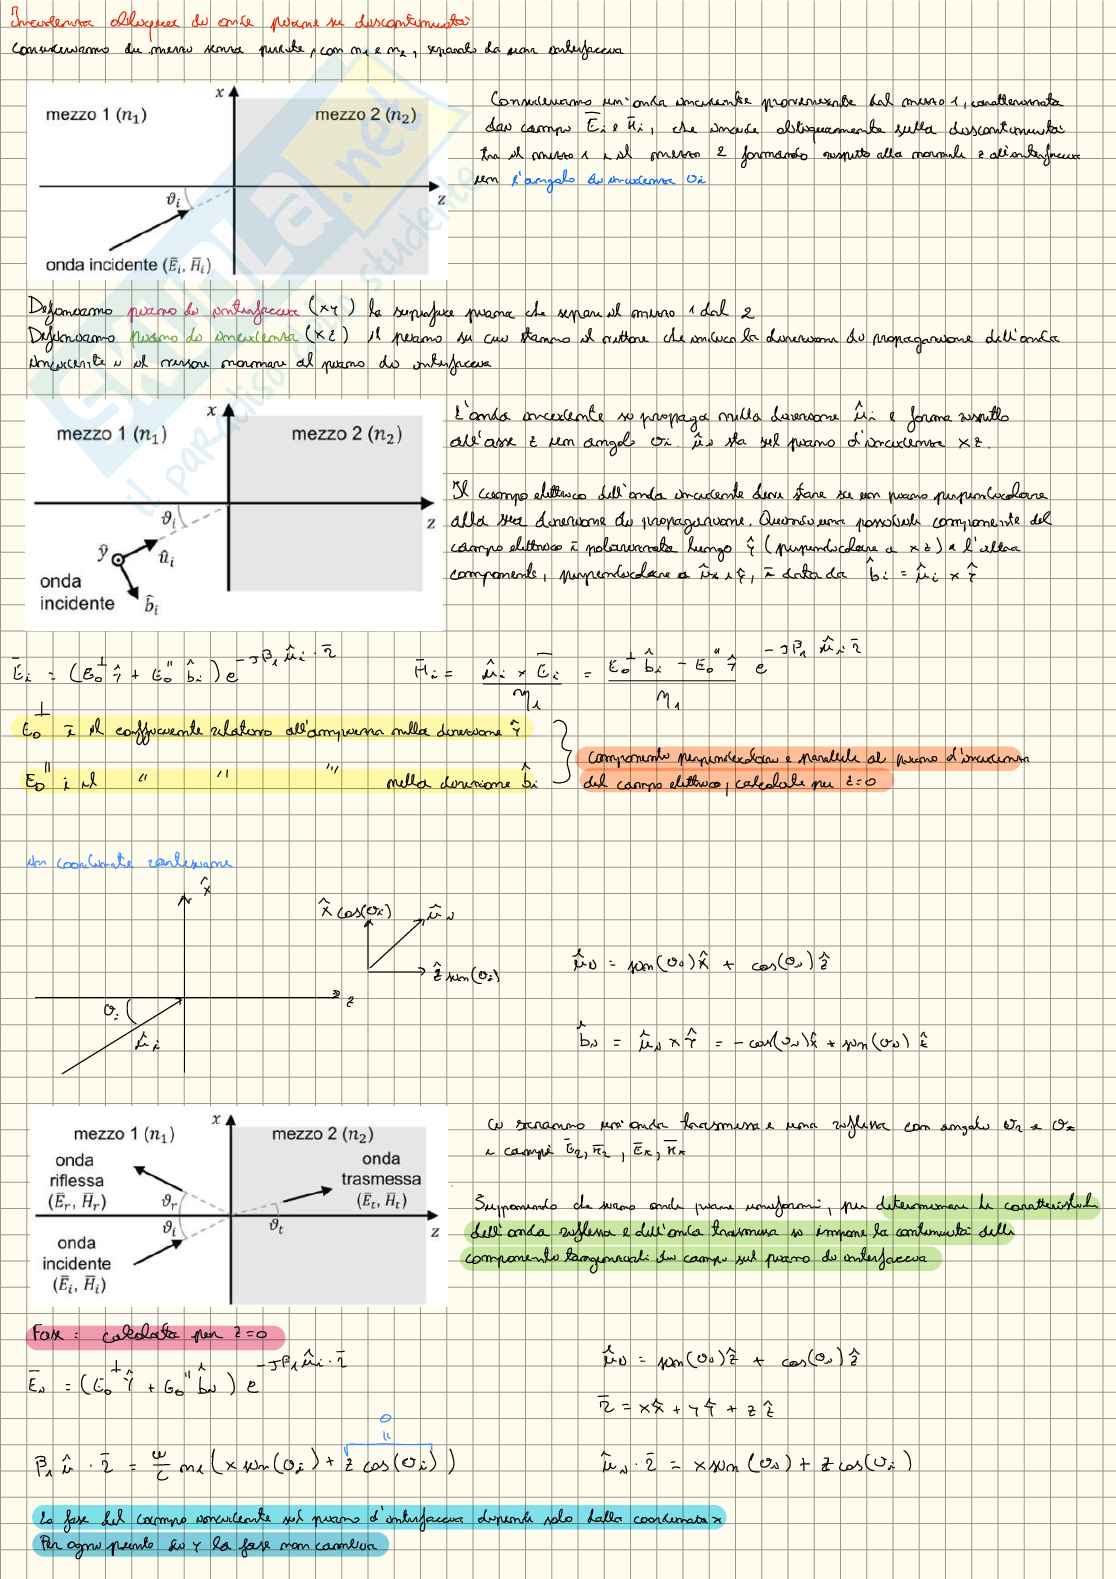 Incidenza obliqua di onde piane su discontinuità
Consideriamo due mezzi senza perdite, con n₁ e n₂, separati da una interfaccia
mezzo 1 (n₁)
x
mezzo 2 (n₂)
ϑᵢ
z
onda incidente (Ēᵢ, H̄ᵢ)
Consideriamo un'onda incidente proveniente dal mezzo 1, caratterizzata
dai campi Ēᵢ e H̄ᵢ, che incide obliquamente sulla discontinuità
tra il mezzo 1 e il mezzo 2 formando rispetto alla normale z all'interfaccia
un l'angolo di incidenza θᵢ
Definiamo piano di interfaccia (xy) la superficie piana che separa il mezzo 1 dal 2
Definiamo piano di incidenza (xz) il piano su cui stanno il vettore che indica la direzione di propagazione dell'onda
incidente e il versore normale al piano di interfaccia
x
mezzo 1 (n₁)
mezzo 2 (n₂)
ϑᵢ
z
ŷ
ûᵢ
onda
incidente
b̂ᵢ
L'onda incidente si propaga nella direzione μ̂ᵢ e forma rispetto
all'asse z un angolo θᵢ. μ̂ᵢ sta sul piano d'incidenza xz.
Il campo elettrico dell'onda incidente deve stare su un piano perpendicolare
alla sua direzione di propagazione. Quindi una possibile componente del
campo elettrico è polarizzata lungo ŷ (perpendicolare a xz) e l'altra
componente, perpendicolare a μ̂ᵢ e ŷ, è data da b̂ᵢ = μ̂ᵢ × ŷ
Ēᵢ = (E₀^⊥ ŷ + E₀^" b̂ᵢ) e^(-Jβ₁ μ̂ᵢ · r̄)
H̄ᵢ = (μ̂ᵢ × Ēᵢ)/η₁ = (E₀^⊥ b̂ᵢ - E₀^" ŷ)/η₁ e^(-Jβ₁ μ̂ᵢ r̄)
E₀^⊥ è il coefficiente relativo all'ampiezza nella direzione ŷ
E₀^" è il " " " nella direzione b̂ᵢ
componente perpendicolare e parallela al piano d'incidenza
del campo elettrico, calcolate per z=0
in coordinate cartesiane
x̂
x̂ cos(θᵢ)
μ̂ᵢ
ẑ sen(θᵢ)
z
θᵢ
μ̂ᵢ
μ̂ᵢ = sen(θᵢ)x̂ + cos(θᵢ)ẑ
b̂ᵢ = μ̂ᵢ × ŷ = -cos(θᵢ)x̂ + sen(θᵢ) ẑ
x
mezzo 1 (n₁)
mezzo 2 (n₂)
onda
riflessa
(Ēᵣ, H̄ᵣ)
onda
trasmessa
(Ēₜ, H̄ₜ)
ϑᵣ
ϑᵢ
ϑₜ
z
onda
incidente
(Ēᵢ, H̄ᵢ)
Ci saranno un'onda trasmessa e una riflessa con angoli θᵣ e θₜ
e campi Ēᵣ, H̄ᵣ, Ēₜ, H̄ₜ
Supponendo che siano onde piane uniformi, per determinare le caratteristiche
dell'onda riflessa e dell'onda trasmessa si impone la continuità delle
componenti tangenziali dei campi sul piano di interfaccia
Fase: calcolata per z=0
Ēᵢ = (E₀^⊥ ŷ + E₀^" b̂ᵢ) e^(-Jβ₁ μ̂ᵢ · r̄)
μ̂ᵢ = sen(θᵢ)ẑ + cos(θᵢ)ẑ
r̄ = xx̂ + yŷ + zẑ
0
"
β₁ μ̂ · r̄ = ω/c n₁ (x sen(θᵢ) + z cos(θᵢ))
μ̂ᵢ · r̄ = x sen(θᵢ) + z cos(θᵢ)
La fase del campo incidente sul piano d'interfaccia dipende solo dalla coordinata x
Per ogni punto su y la fase non cambia